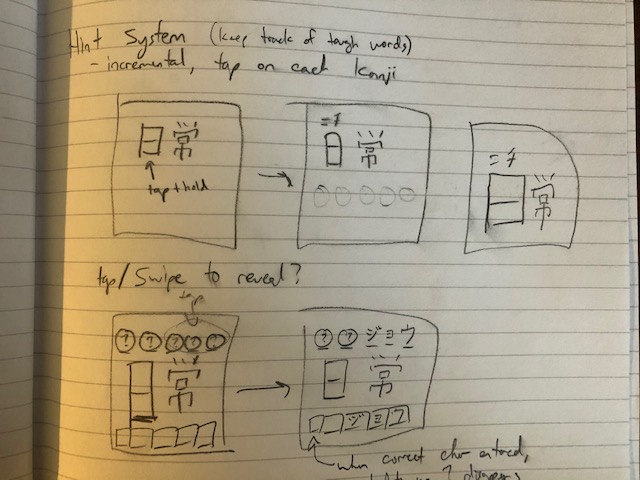 Hint System (keep track of tough words)
- incremental, tap on each Kanji
日常
tap + hold
ニチ
日常
ニチ
日常
tap/Swipe to reveal?
tap
? ? ? ? ?
日常
? ? ジョウ
日常
ジョウ
when correct char entered,